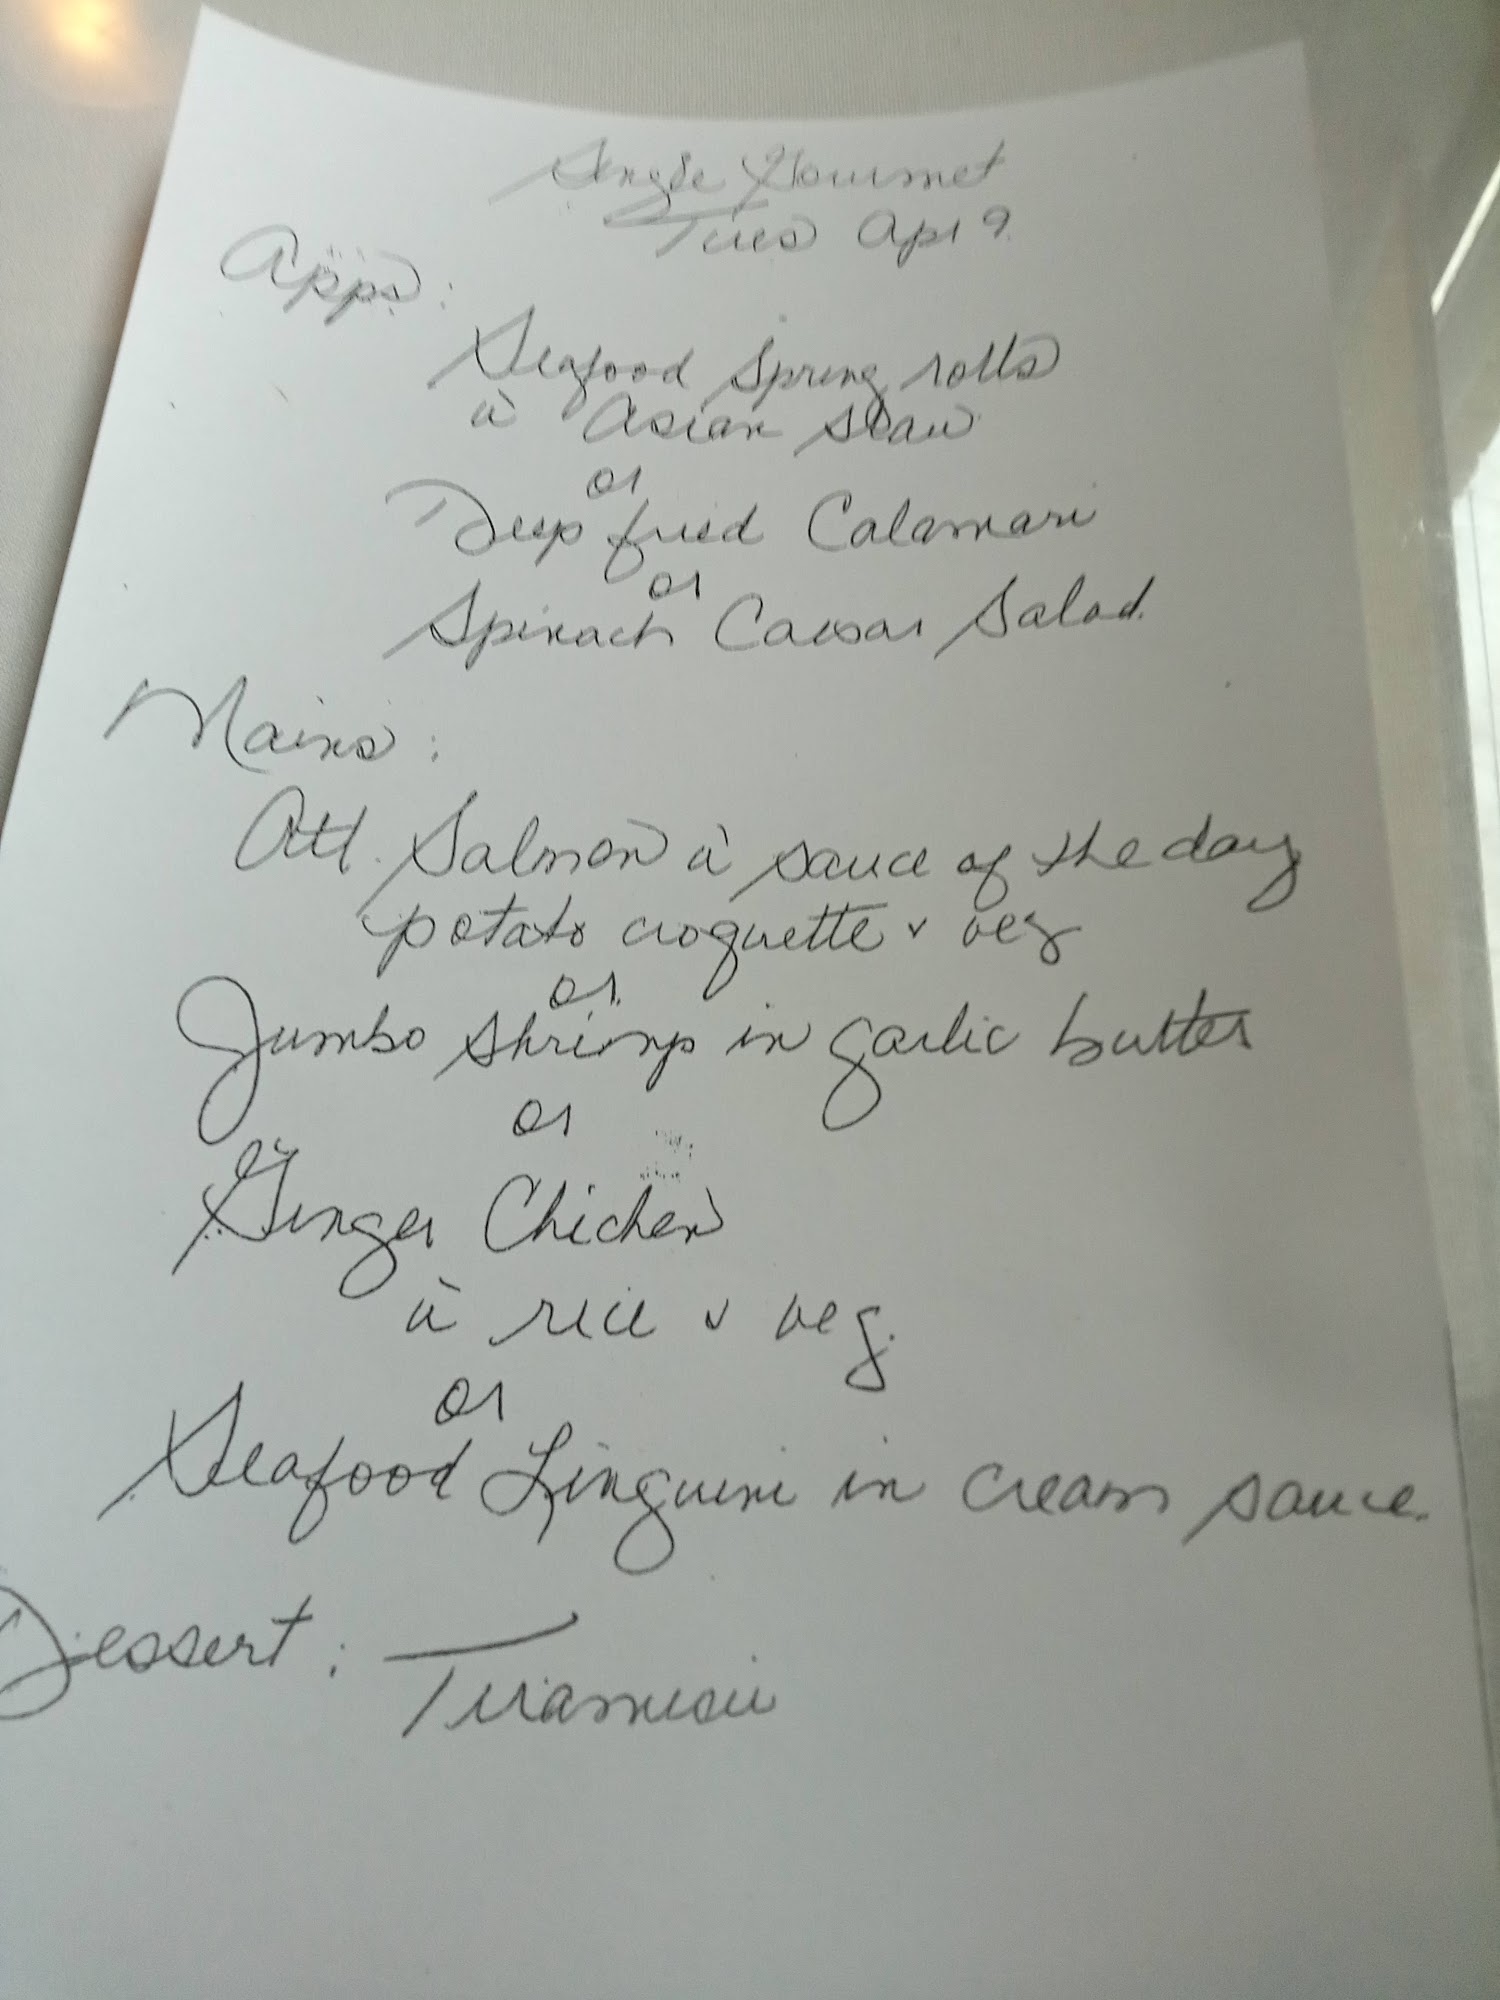 Single Gourmet
Tues Apr 9
Apps:
Seafood Spring rolls
à Asian slaw
or
Deep fried Calamari
or
Spinach Caesar Salad.
Mains:
Atl. Salmon à sauce of the day
potato croquette & veg
or
Jumbo shrimp in garlic butter
or
Ginger Chicken
à rice & veg.
or
Seafood Linguini in cream sauce.
Dessert: Tiramisu